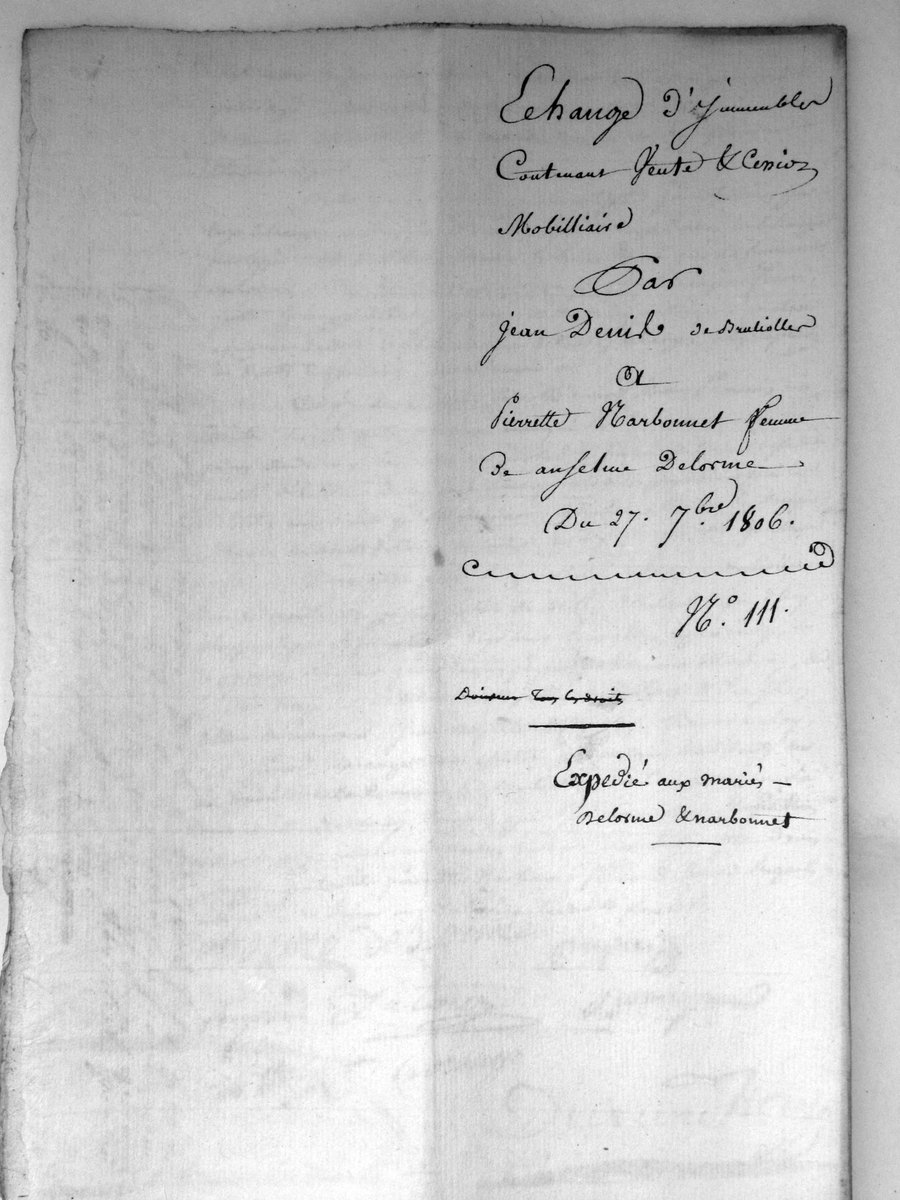 Echange d'Jmmeubles
Contenant Vente & Cession
Mobilliaire
Par
jean Denis de Brulioles
A
Pierrette Narbonnet femme
De anselme Delorme
Du 27. 7.bre 1806.
N.o 111.
Doivent Tous les droits
Expedié aux mariés
Delorme & narbonnet